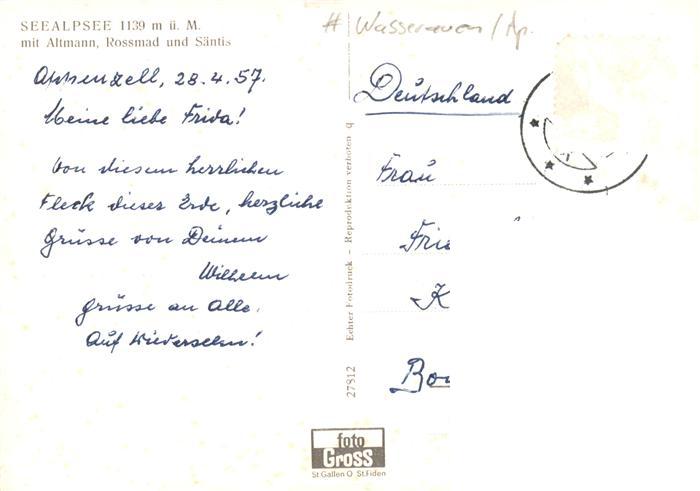 SEEALPSEE 1139 m ü. M.
mit Altmann, Rossmad und Säntis
# Wasserauen / Ap.
Appenzell, 28.4.57.
Meine liebe Frida!
Von diesem herrlichen
Fleck dieser Erde, herzliche
Grüsse von Deinem
Wilhelm
Grüsse an Alle.
Auf Wiedersehn!
Echter Fotodruck - Reproduktion verboten q
27812
Deutschland
Frau
Fri
K
Bo
foto
Gross
St.Gallen O St.Fiden